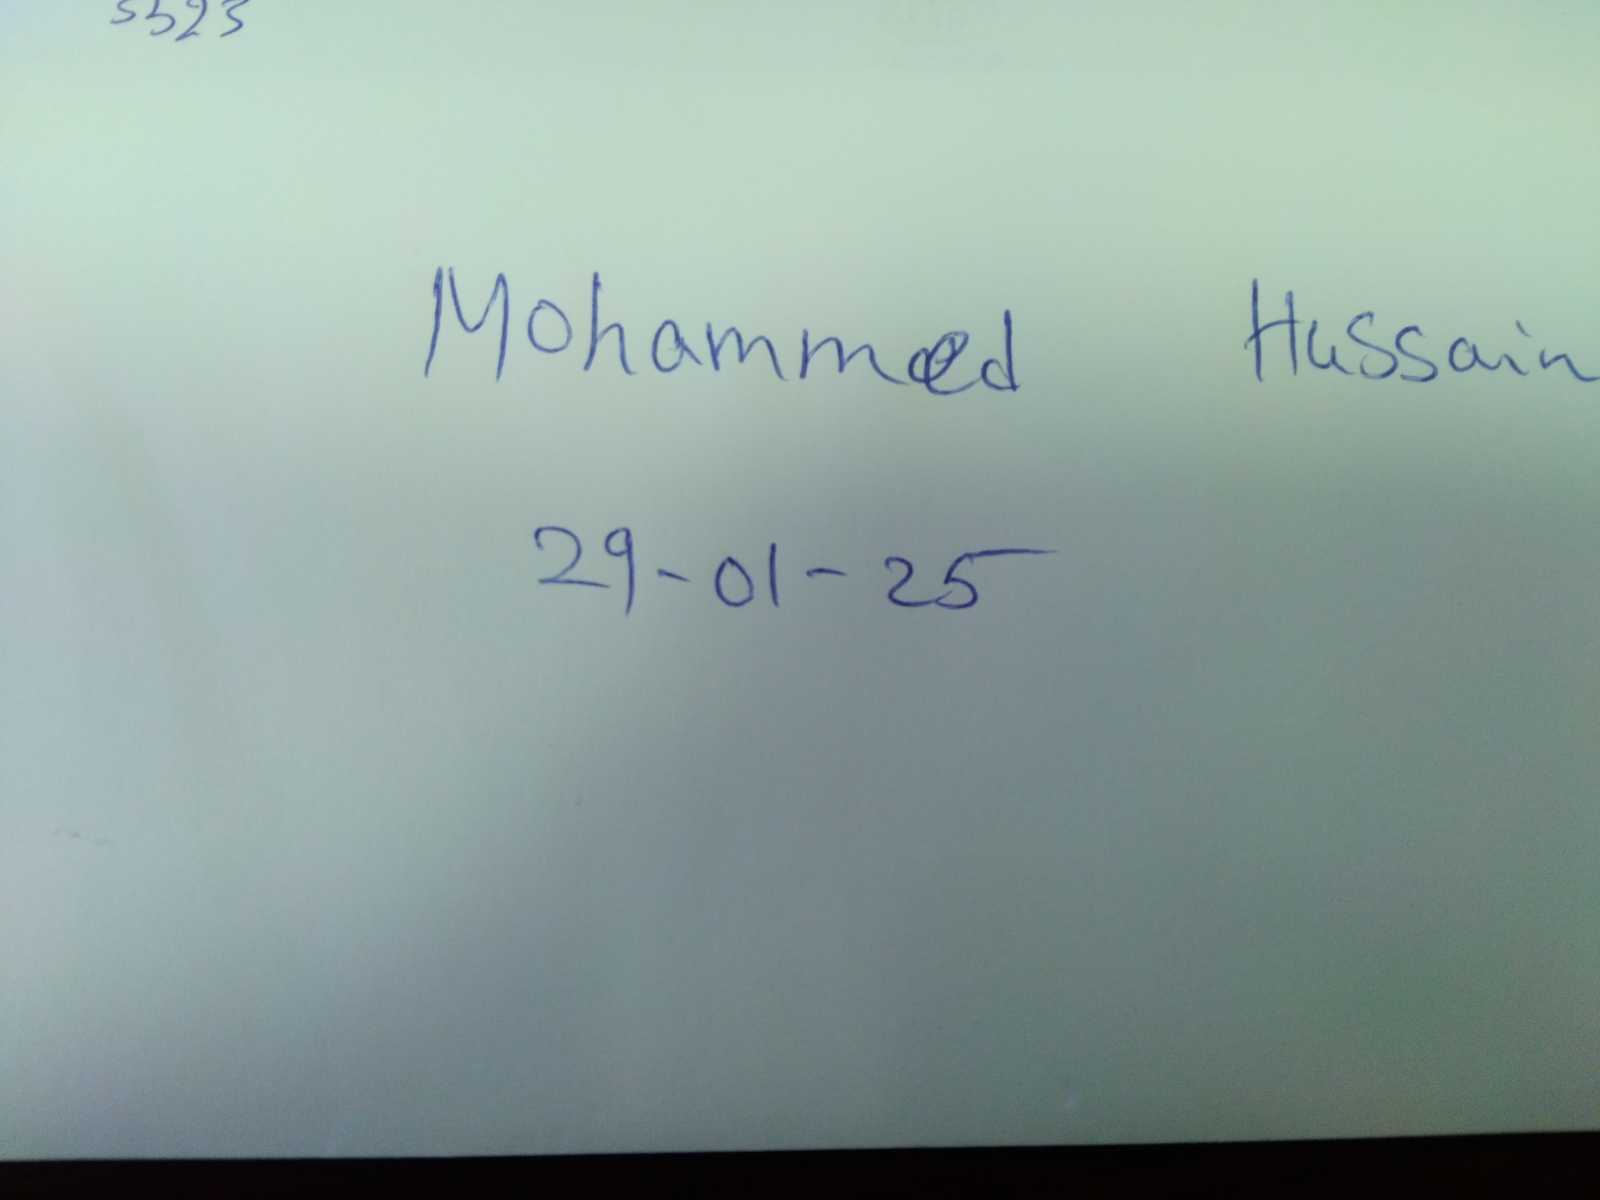 Mohammed Hussain
29-01-25